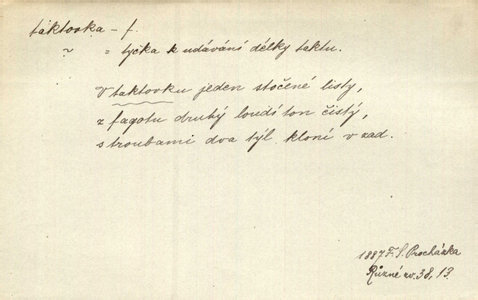 taktovka – f.
~ " tyčka k udávání délky taktu.
V taktovku jeden stočené listy,
z fagotu druhý loudí ton čistý,
s troubami dva týl kloní v zad.
1887 F. S. Procházka
Různé sv. 38, 13